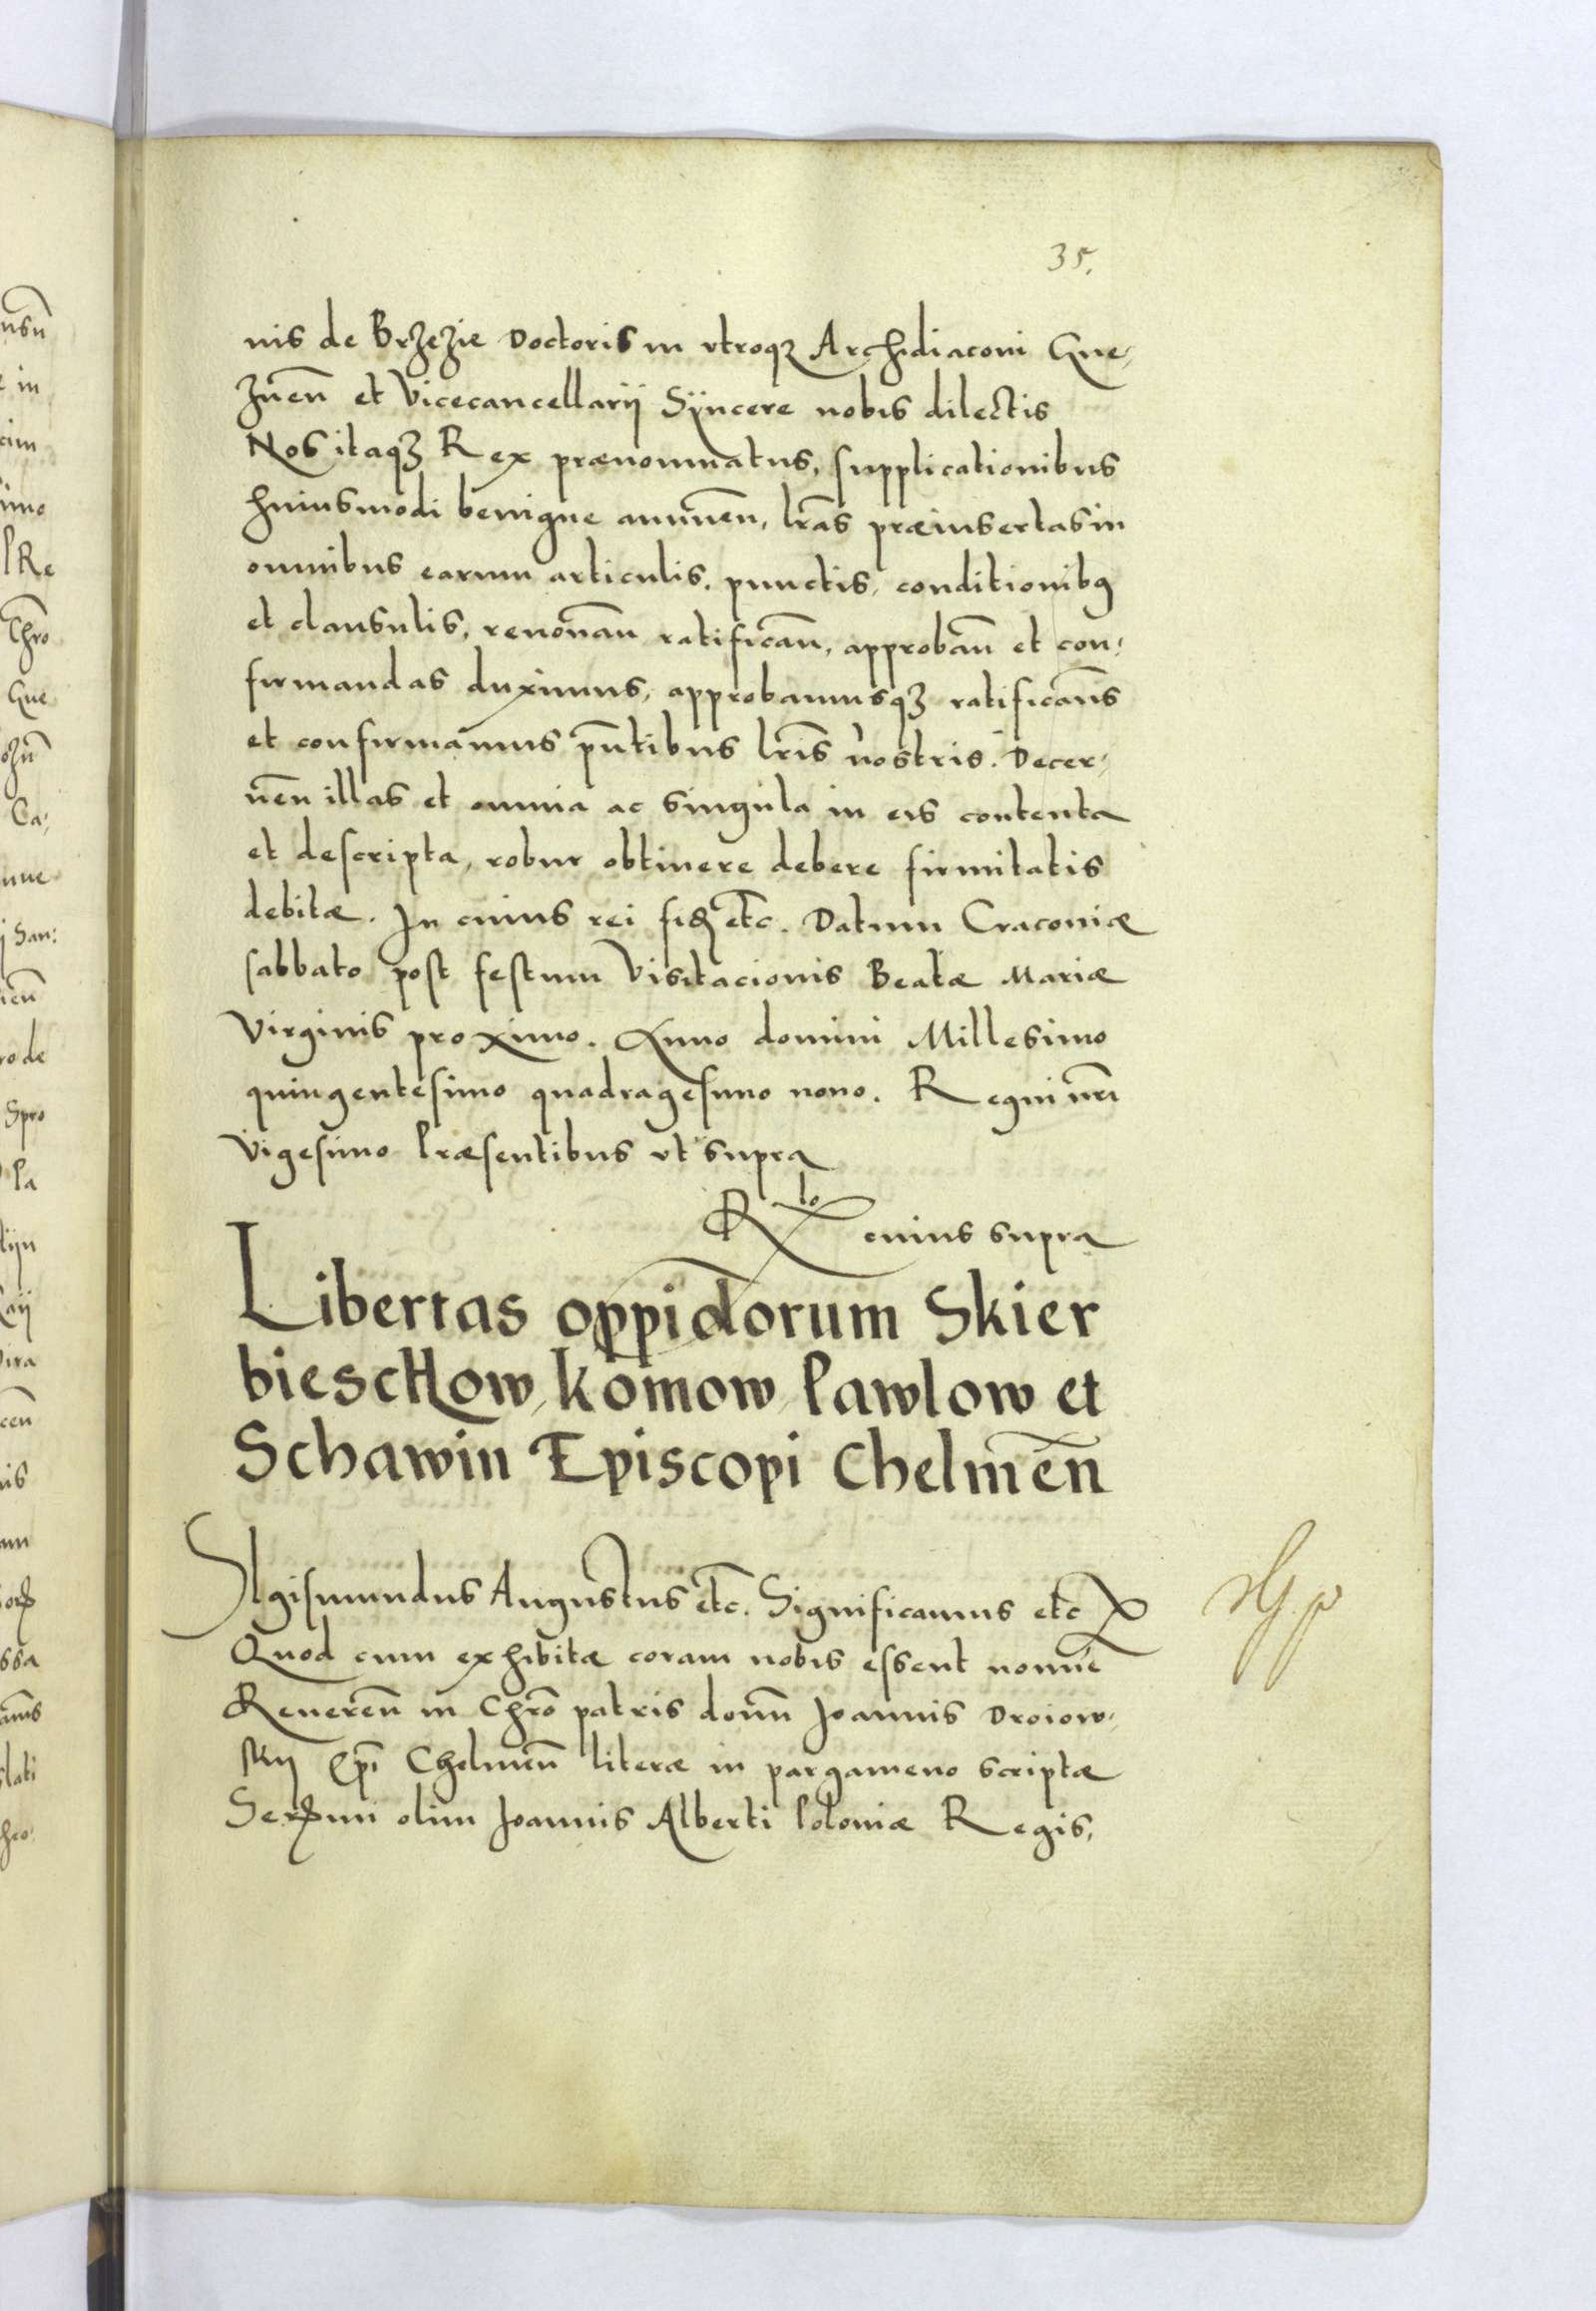 35.
nis de Brzezie Doctoris in vtroqꝫ Archidiaconi Gne,
znen̄ et Vicecancellarij Sÿncere nobis dilectis
Nos itaqꝫ Rex prænominatus, supplicationibus
huiusmodi benigne annuen̄, lr̄as præinsertas in
omnibus earum articulis, punctis, conditionibꝰ
et clausulis, renouan̄ ratifican̄, approban̄ et con,
firmandas duximus, approbamusqꝫ ratificam̄s
et confirmamus pn̄tibus lr̄is nostris. Decer,
nen̄ illas et omnia ac singula in eis contenta
et descripta, robur obtinere debere firmitatis
debitæ. In cuius rei fid etc̄. Datum Cracouiæ
sabbato post festum Visitacionis Beatæ Mariæ
Virginis proximo. Anno domini Millesimo
quingentesimo quadragesimo nono. Regni nr̄i
Vigesimo Præsentibus vt supra
Rlo cuius supra
Libertas oppidorum Skier
bieschow, Komow, Pawlow et
Schawin Episcopi Chelmen̄
SIgismundus Augustus etc̄. Significamus etc
Quod cum exhibitæ coram nobis essent nomīe
Reueren̄ in Chr̄o patris domn̄ Joannis Droiow,
skij Ep̄i Chelmen̄ literæ in pargameno scriptæ
Serꝫmi olim Joannis Alberti Poloniæ Regis,